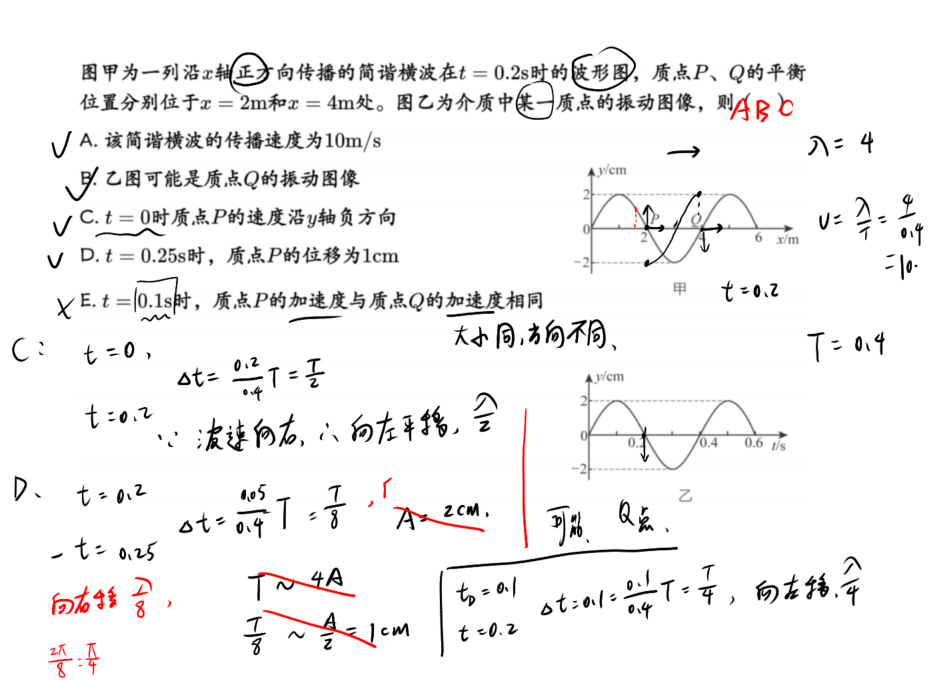 图甲为一列沿x轴正方向传播的简谐横波在t = 0.2s时的波形图，质点P、Q的平衡
位置分别位于x = 2m和x = 4m处。图乙为介质中某一质点的振动图像，则（ ）
ABC
✓ A. 该简谐横波的传播速度为10m/s
✓ B. 乙图可能是质点Q的振动图像
✓ C. t = 0时质点P的速度沿y轴负方向
✓ D. t = 0.25s时，质点P的位移为1cm
× E. t = 0.1s时，质点P的加速度与质点Q的加速度相同
大小同,方向不同、
λ = 4
v = λ/T = 4/0.4
= 10.
T = 0.4
y/cm
2
P
Q
0
2
4
6
x/m
−2
甲
t = 0.2
C：
t = 0,
t = 0.2
Δt = 0.2/0.4 T = T/2
∵ 波速向右, ∴ 向左平移, λ/2
y/cm
2
0
0.2
0.4
0.6
t/s
−2
乙
可能、Q点.
D、
t = 0.2
− t = 0.25
Δt = 0.05/0.4 T = T/8 ,
A = 2cm.
向右移 λ/8 ,
2π/8 = π/4
T ~ 4A
T/8 ~ A/2 = 1cm
t_D = 0.1
t = 0.2
Δt = 0.1 = 0.1/0.4 T = T/4 , 向左移. λ/4